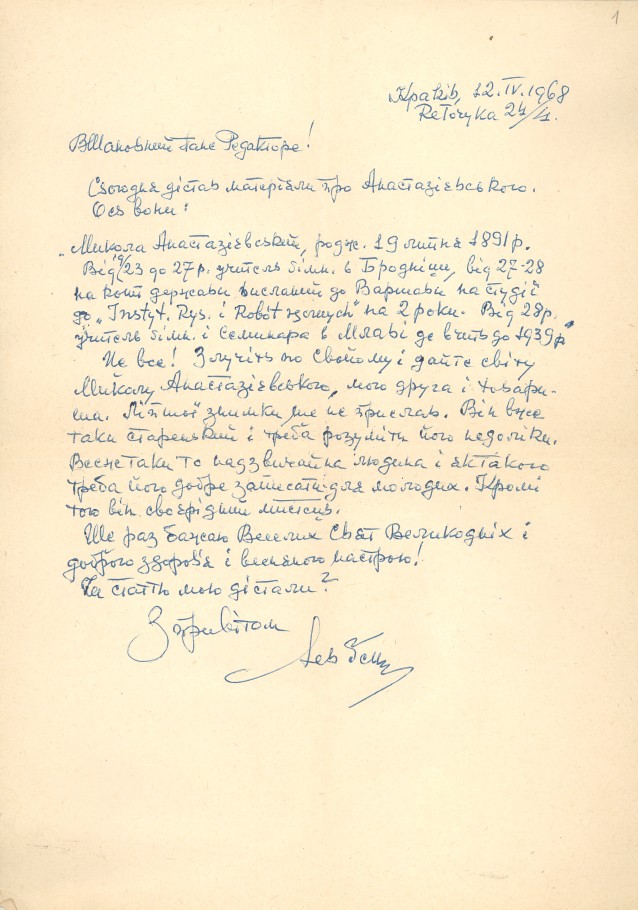 1
Краків, 12.IV.1968
Reтoryka 24/4.
ВШановний Пане Редакторе!
Сьогодня дістав матеріали про Анастазієвського.
Ось вони:
„Микола Анастазієвський, родж. 19 липня 1891 р.
Від 19/23 до 27 р. учитель гімн. в Бродніци, від 27-28
на кошт держави висланий до Варшави на студії
до „Instyt. Rys. i Robót ręcznych" на 2 роки. Від 28 р.
учитель гімн. і Семинара в Млаві де вчить до 1939 р"
Це все! Злучіть по свойому і дайте світу
Миколу Анастазієвського, мого друга і товари-
ша. Ліпшої знимки ще не прислав. Він вже
таки старенький і треба розуміти його недоліки.
Всежтаки то надзвичайна людина і як такого
треба його добре записати для молодих. Кромі
того він своєрідний мистець.
Ще раз бажаю Веселих Свят Великодніх і
доброго здоровʼя і весняного настрою!
Чи статтю мою дістали?
З привітом
Лев Ґец